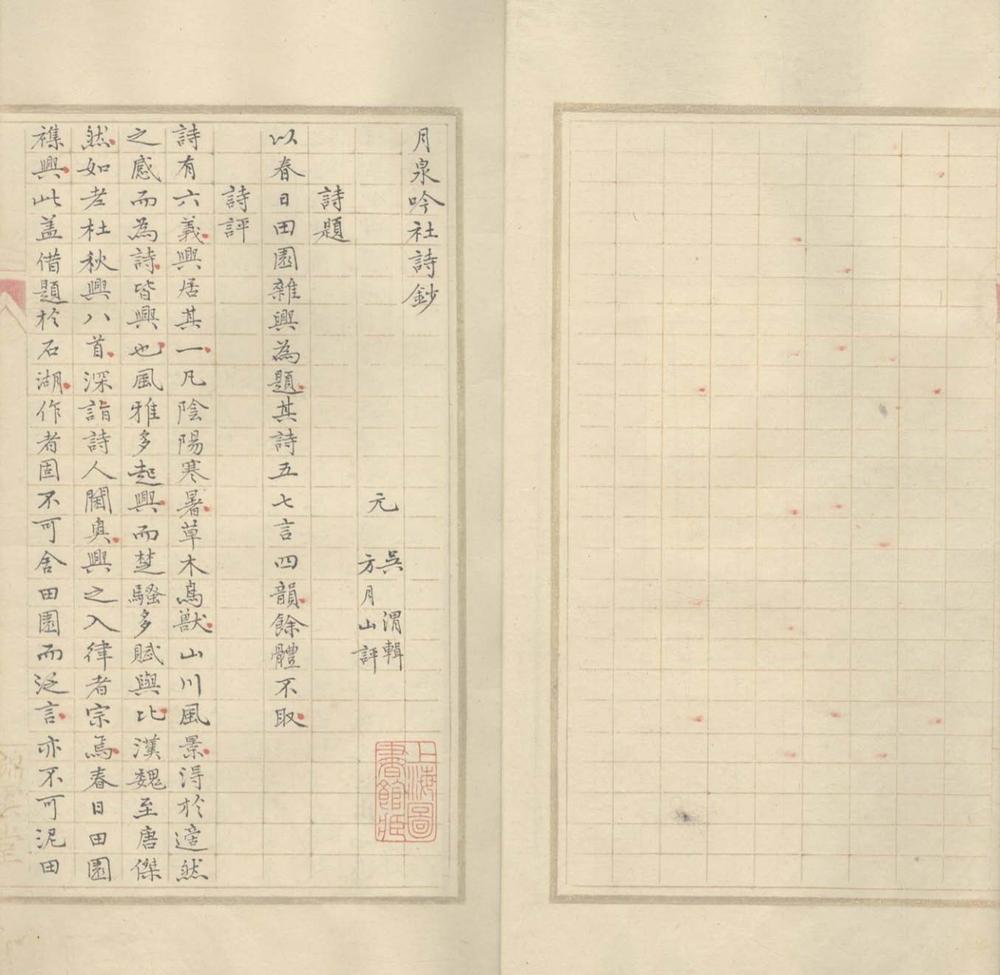 月泉吟社詩鈔
元 吳渭輯
方月山評
詩題
以春日田園雜興為題其詩五七言四韻餘體不取
詩評
詩有六義興居其一凡陰陽寒暑草木鳥獸山川風景淂於適然
之感而為詩皆興也風雅多起興而楚騷多賦與比漢魏至唐傑
然如老杜秋興八首深詣詩人閫奥興之入律者宗焉春日田園
襍興此盖借題於石湖作者固不可舍田園而泛言亦不可泥田
上海圖書館藏